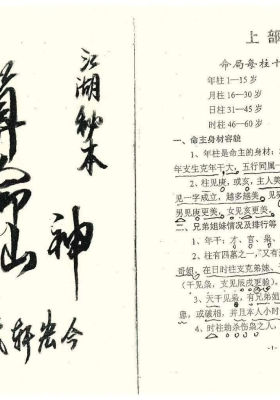 算命山
江湖秘本
神
轩宏今
上部
命局每柱十
年柱1—15岁
月柱16—30岁
日柱31—45岁
时柱46—60岁
一、命主身材容貌
1、年柱是命主的身材：
年支生克年干大，五行同属一
2、柱见庚，或亥，主人美
见一字成立，越多越美。见
男见庚更美，女见亥更美。
二、兄弟姐妹情况及排行等
1、年干：才、官、枭、
2、柱有四墓之一，又有
哥姐，在日时柱支克弟妹、
（干见条，支见辰戌更验）。
3、天干见枭，有兄弟姐
患，或破相，并且本人小时
4、时柱劫杀伤枭之人，
·1·